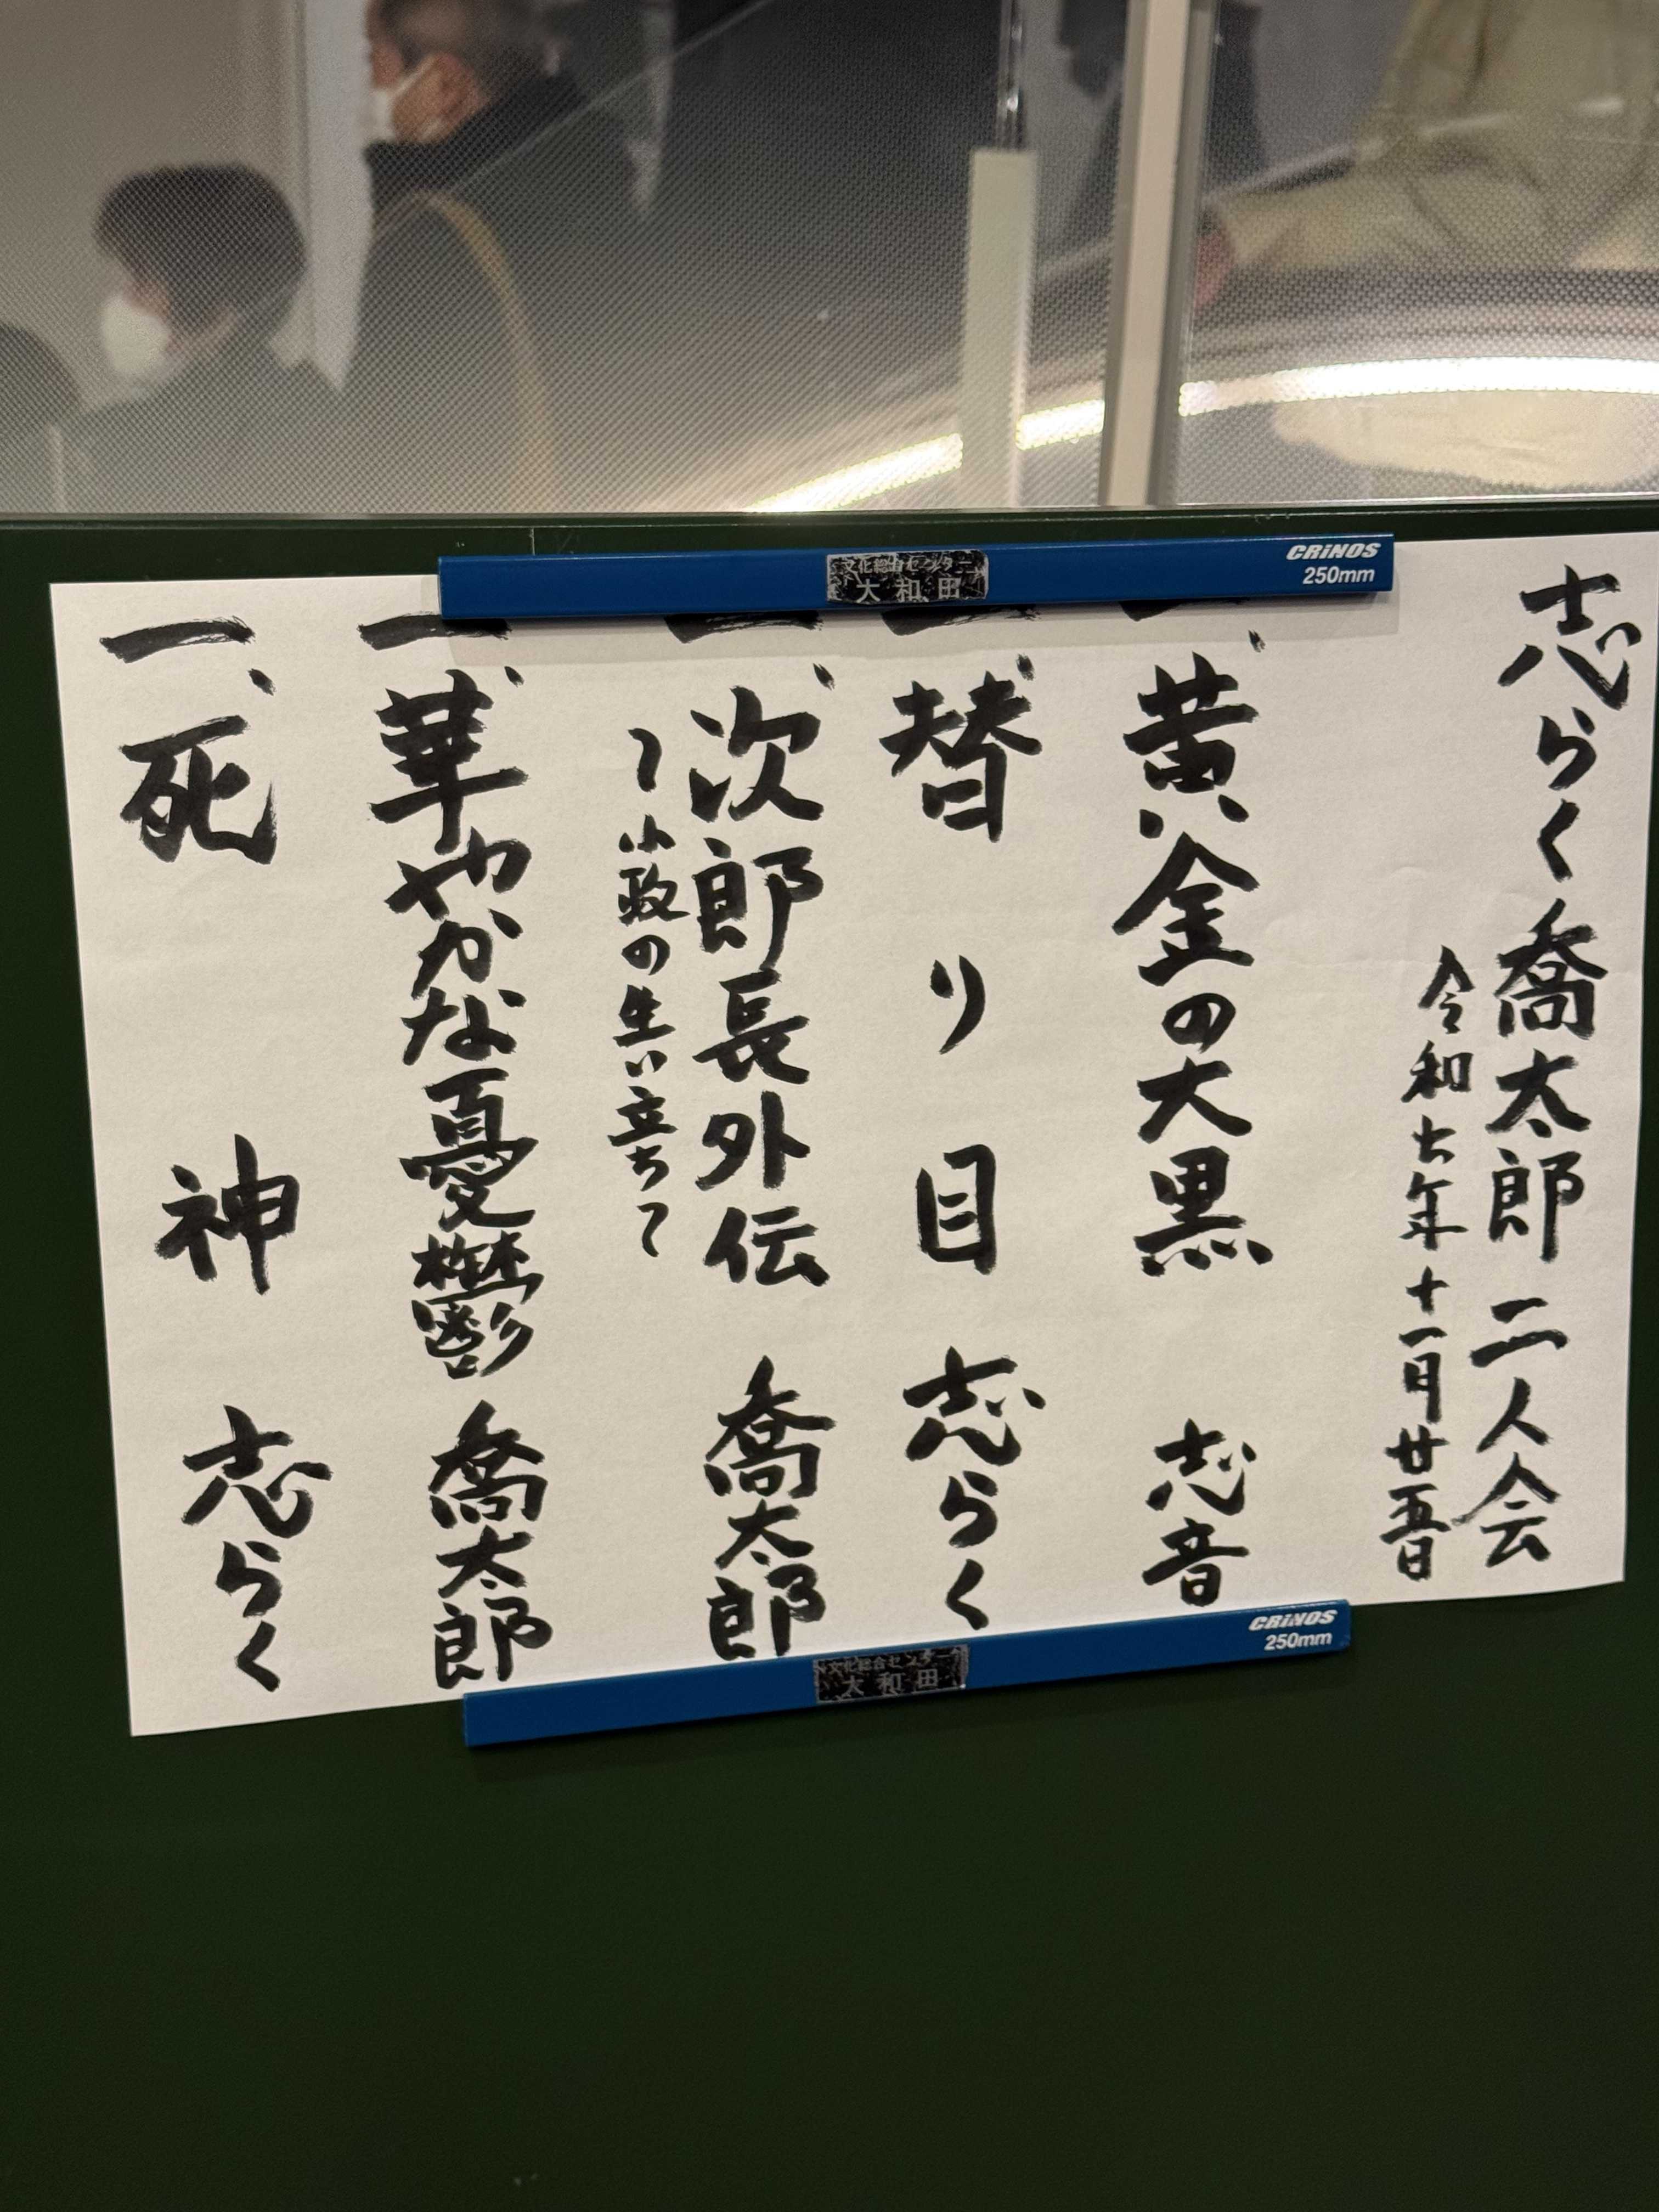 志らく喬太郎 二人会
令和七年十一月廿五日
一、黄金の大黒 志音
一、替り目 志らく
一、次郎長外伝 喬太郎
〜小政の生い立ち〜
一、華やかな憂鬱 喬太郎
一、死神 志らく
CRiNOS
250mm
文化総合センター
大和田
CRiNOS
250mm
文化総合センター
大和田